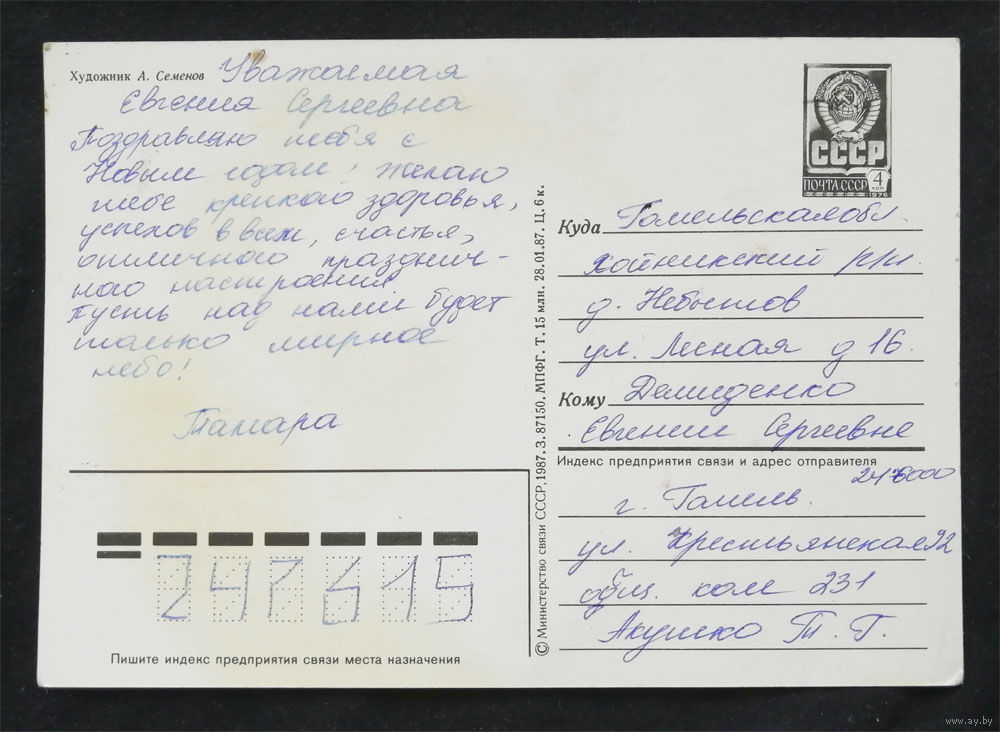 Художник А. Семенов
Уважаемая
Евгения Сергеевна
Поздравляю тебя с
Новым годом! Желаю
тебе крепкого здоровья,
успехов в всем, счастья,
отличного празднич-
ного настроения
Пусть над нами будет
только мирное
небо!
Тамара
СССР
ПОЧТА СССР
4
коп
1976
Куда Гомельская обл.
Хойникский р/н.
д. Небытов
ул. Лесная д 16.
Кому Демиденко
Евгении Сергеевне
Индекс предприятия связи и адрес отправителя
г. Гомель.
ул. Крестьянская 92
общ. ком 231
Акушко Т. Г.
© Министерство связи СССР, 1987. З. 87150. МПФГ. Т. 15 млн. 28.01.87. Ц. 6 к.
247615
Пишите индекс предприятия связи места назначения
www.ay.by